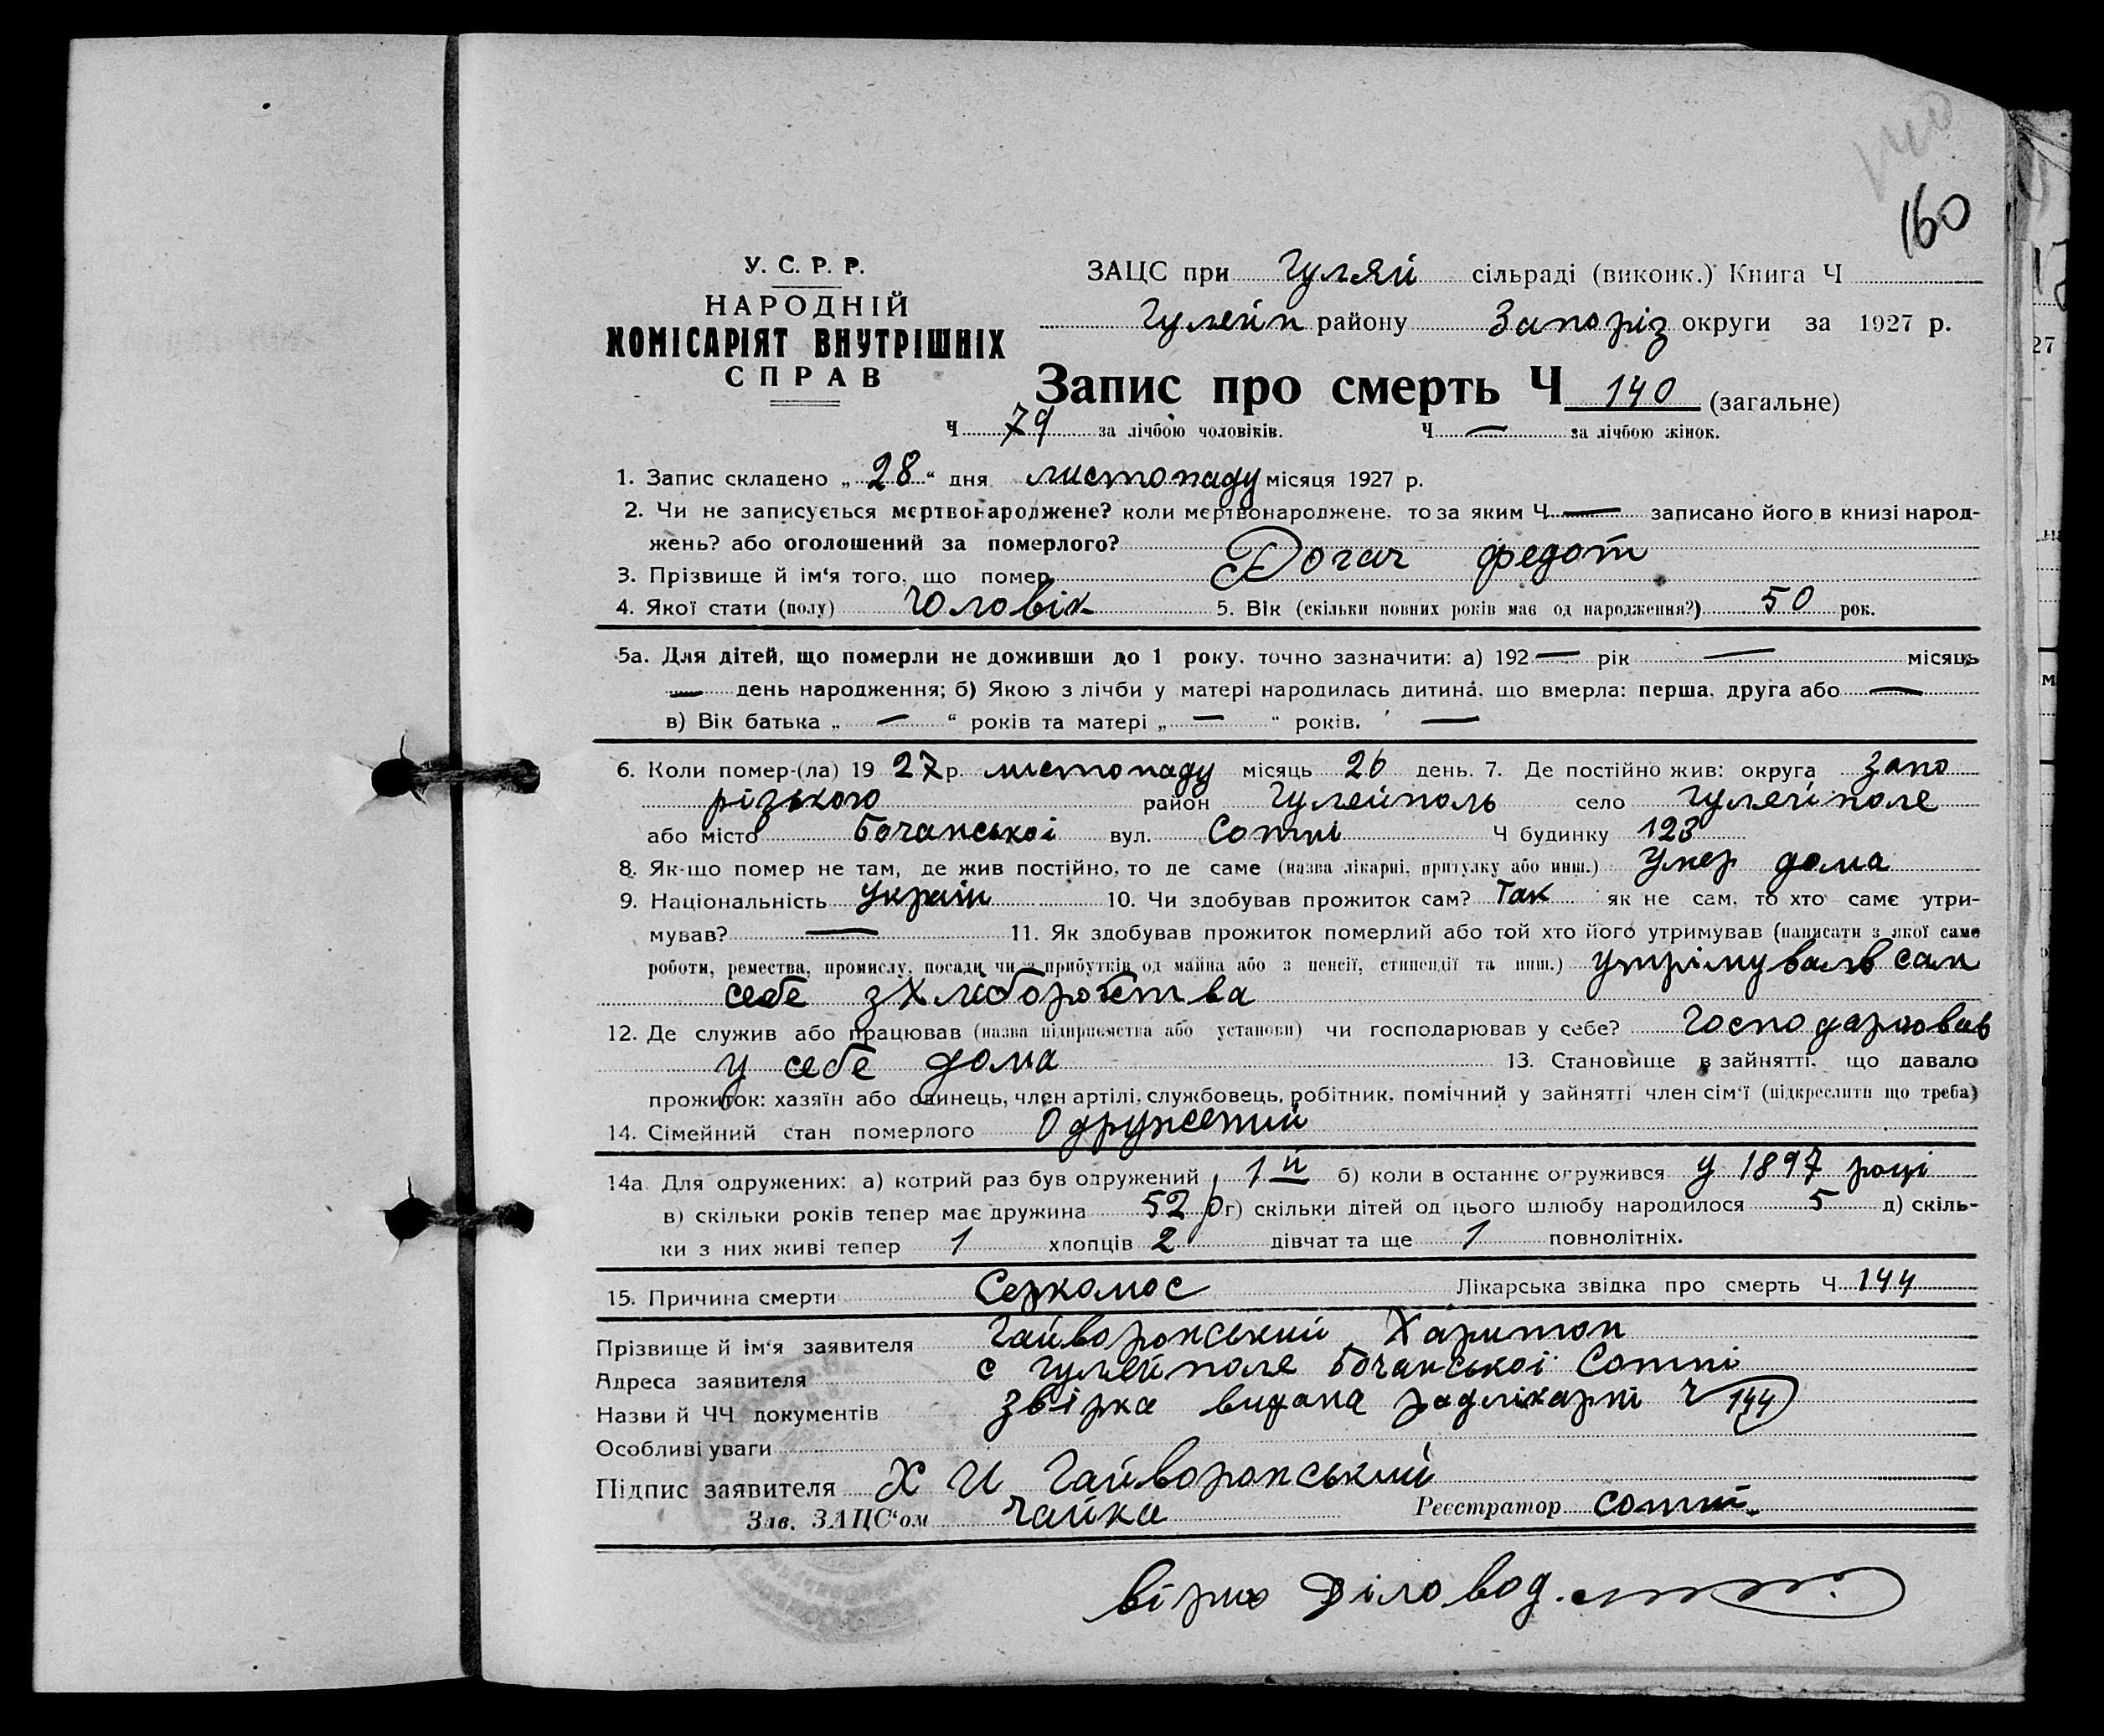 160
У. С. Р. Р.
НАРОДНІЙ
КОМІСАРІЯТ ВНУТРІШНІХ
СПРАВ
ЗАЦС при Гуляй сільраді (виконк.) Книга Ч
Гулейп району Запоріз округи за 1927 р.
Запис про смерть Ч 140 (загальне)
Ч 79 за лічбою чоловіків. Ч — за лічбою жінок.
1. Запис складено „ 28 “ дня листопаду місяця 1927 р.
2. Чи не записується мертвонароджене? коли мертвонароджене, то за яким Ч — записано його в книзі народ-
жень? або оголошений за померлого?
3. Прізвище й ім‘я того, що помер Рогач Федот
4. Якої стати (полу) Чоловік 5. Вік (скільки повних років має од народження?) 50 рок.
5а. Для дітей, що померли не доживши до 1 року, точно зазначити: а) 192 — рік — місяць
— день народження; б) Якою з лічби у матері народилась дитина, що вмерла: перша, друга або —
в) Вік батька „ — “ років та матері „ — “ років. —
6. Коли помер-(ла) 19 27 р. листопаду місяць 26 день. 7. Де постійно жив: округа Запо
різького район Гулейполь село Гуляйполе
або місто Бочанської вул. Сотні Ч будинку 123
8. Як-що помер не там, де жив постійно, то де саме (назва лікарні, притулку або инш.) Умер дома
9. Національність Україн 10. Чи здобував прожиток сам? Так як не сам, то хто саме утри-
мував? — 11. Як здобував прожиток померлий або той хто його утримував (написати з якої саме
роботи, ремества, промислу, посади чи з прибутків од майна або з пенсії, стипендії та инш.) утрімувавъ сам
себе з Хлеборобства
12. Де служив або працював (назва підприємства або установи) чи господарював у себе? Господарював
у себе дома 13. Становище в зайнятті, що давало
прожиток: хазяїн або одинець, член артілі, службовець, робітник, помічний у зайнятті член сім‘ї (підкреслити що треба)
14. Сімейний стан померлого Одружений
14а. Для одружених: а) котрий раз був одружений 1й б) коли в останнє одружився у 1897 році
в) скільки років тепер має дружина 52 р г) скільки дітей од цього шлюбу народилося 5 д) скіль-
ки з них живі тепер 1 хлопців 2 дівчат та ще 1 повнолітніх.
15. Причина смерти Лікарська звідка про смерть Ч 144
Прізвище й ім‘я заявителя Гайворонський Харитон
Адреса заявителя с Гулейполе Бочанської Сотні
Назви й ЧЧ документів звірка видана радлікарні Ч 144
Особливі уваги
Підпис заявителя Х И Гайворонський
Зав. ЗАЦС‘ом Чайка Реєстратор
вірно Діловод.